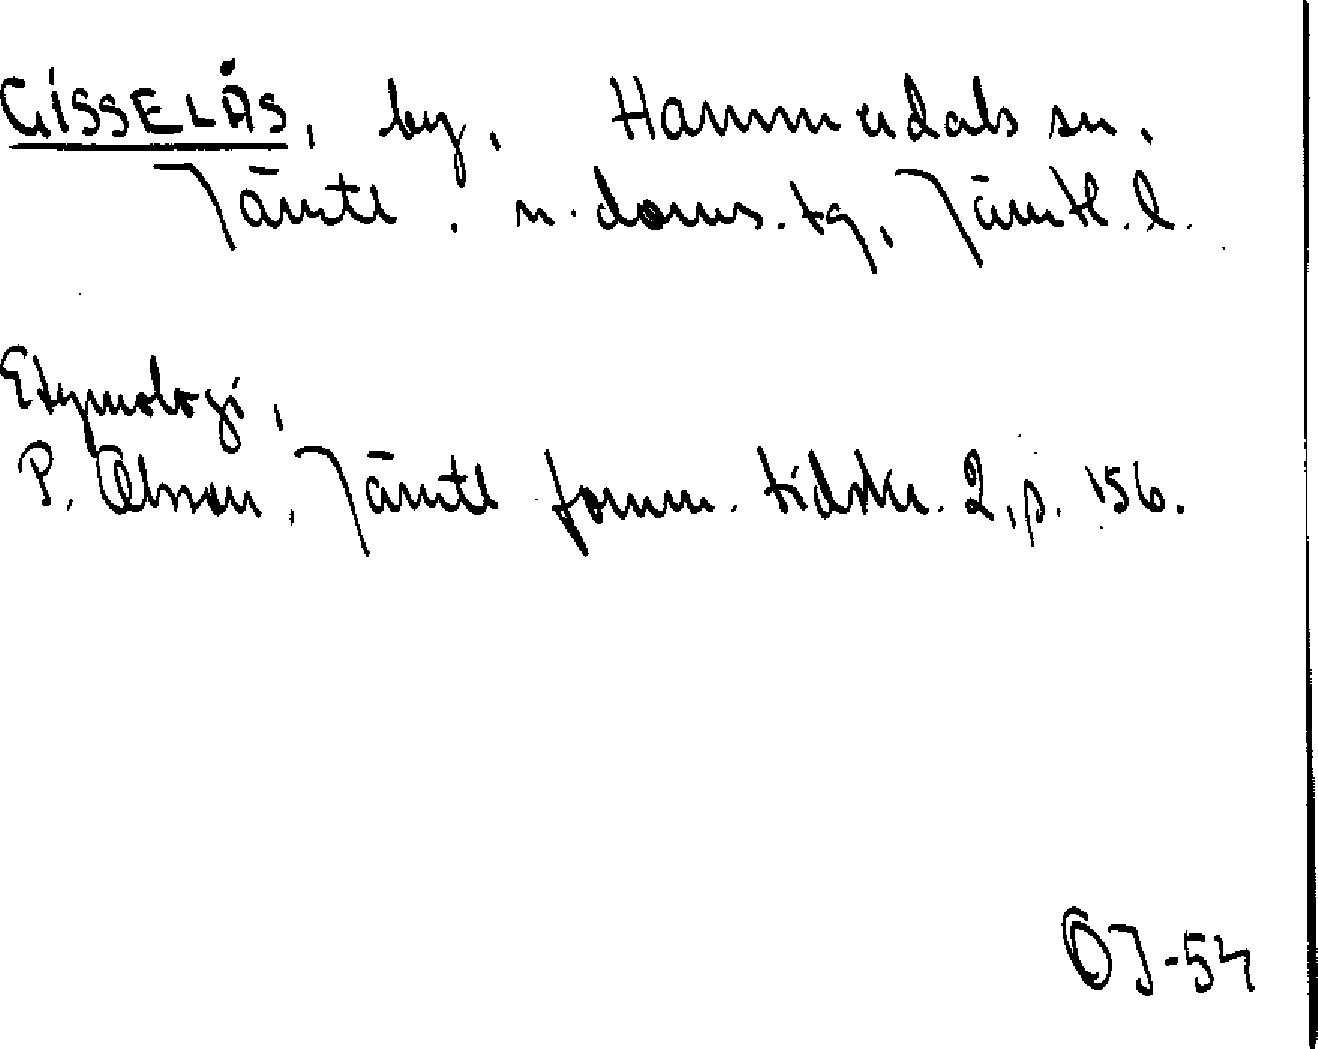 GISSELÅS, by, Hammerdals sn,
Jämtl. n. doms. tg, Jämtl. l.
Etymologi,
P. Olsson, Jämtl fornm. tidskr. 2, p. 156.
OJ-54